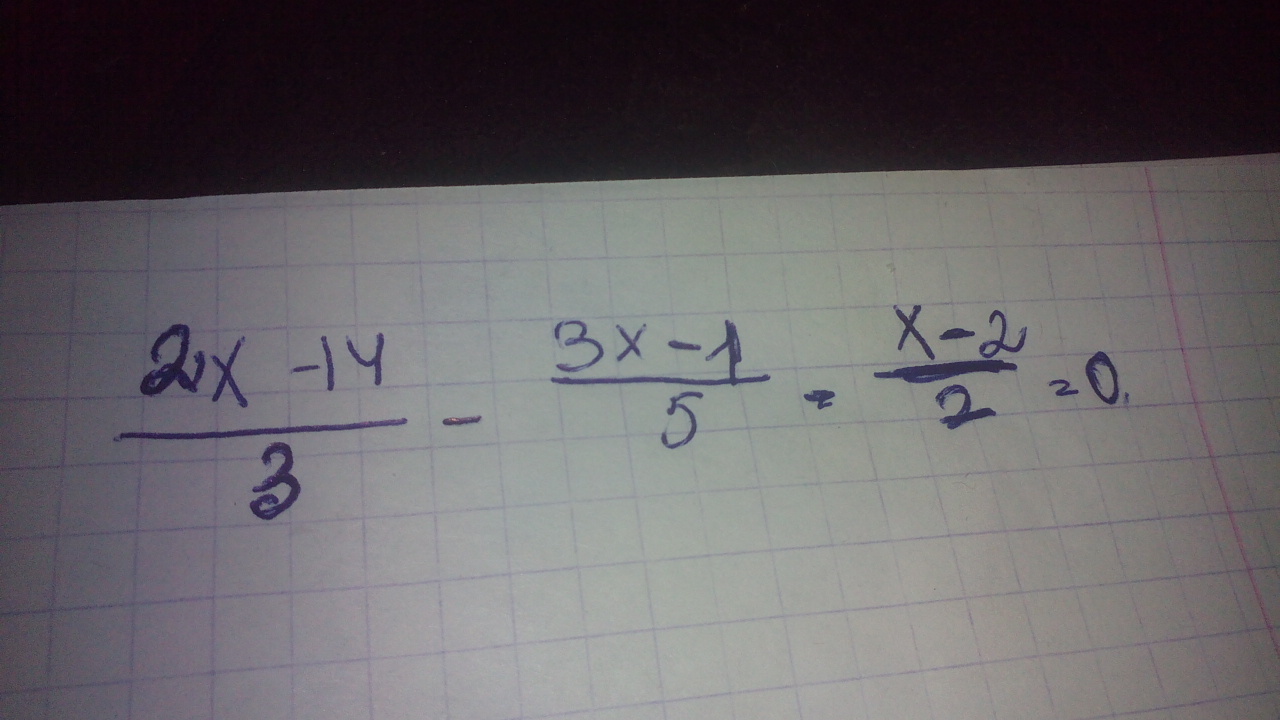 (2x - 14)/3 - (3x - 1)/5 = (x - 2)/2 = 0.